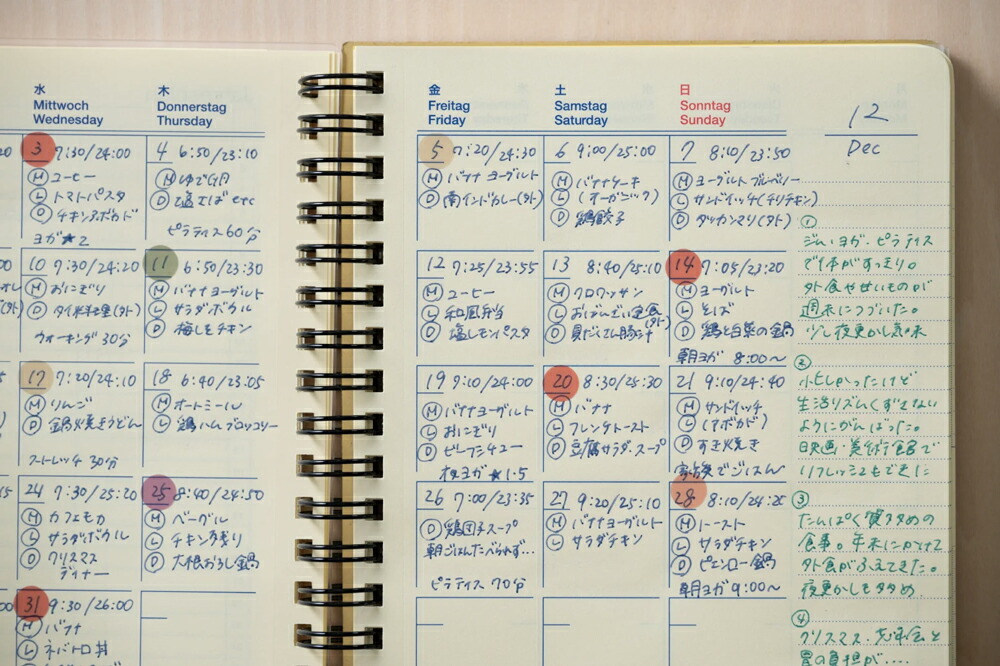 水
Mittwoch
Wednesday
木
Donnerstag
Thursday
金
Freitag
Friday
土
Samstag
Saturday
日
Sonntag
Sunday
12
Dec
3 7:30/24:00
Ⓜ コーヒー
Ⓛ トマトパスタ
Ⓓ チキンアボカド
ヨガ★2
4 6:50/23:10
Ⓜ ゆで卵
Ⓓ 塩そば etc
ピラティス60分
5 7:20/24:30
Ⓜ バナナ ヨーグルト
Ⓓ 南インドカレー(外)
6 9:00/25:00
Ⓜ バナナケーキ
Ⓛ (オーガニック)
Ⓓ 鶏餃子
7 8:10/23:50
Ⓜ ヨーグルト ブルーベリー
Ⓛ サンドイッチ(チリチキン)
Ⓓ タッカンマリ(外)
10 7:30/24:20
Ⓜ おにぎり
Ⓓ タイ料理(外)
ウォーキング 30分
11 6:50/23:30
Ⓜ バナナヨーグルト
Ⓛ サラダボウル
Ⓓ 梅しそチキン
12 7:25/23:55
Ⓜ コーヒー
Ⓛ 和風弁当
Ⓓ 塩レモンパスタ
13 8:40/25:10
Ⓜ クロワッサン
Ⓛ (外)
Ⓓ 豚汁
14 7:05/23:20
Ⓜ ヨーグルト
Ⓛ そば
Ⓓ 鶏と白菜の鍋
朝ヨガ 8:00〜
17 7:20/24:10
Ⓜ りんご
Ⓓ 鍋焼きうどん
ストレッチ 30分
18 6:40/23:05
Ⓜ オートミール
Ⓛ 鶏ハム ブロッコリー
19 7:10/24:00
Ⓜ バナナヨーグルト
Ⓛ おにぎり
Ⓓ ビーフシチュー
夜ヨガ★1.5
20 8:30/25:30
Ⓜ バナナ
Ⓛ フレンチトースト
Ⓓ 豆腐サラダ・スープ
21 9:10/24:40
Ⓜ サンドイッチ
Ⓛ (アボカド)
Ⓓ すき焼き
家族でごはん
24 7:30/25:20
Ⓜ カフェモカ
Ⓛ サラダボウル
Ⓓ クリスマス
ディナー
25 8:40/24:50
Ⓜ ベーグル
Ⓛ チキン残り
Ⓓ 大根おろし鍋
26 7:00/23:35
Ⓓ 鶏団子スープ
朝ごはんたべられず…
ピラティス 70分
27 9:20/25:10
Ⓜ バナナヨーグルト
Ⓛ サラダチキン
28 8:10/24:20
Ⓜ トースト
Ⓛ サラダチキン
Ⓓ ピエンロー鍋
朝ヨガ 9:00〜
31 9:30/26:00
Ⓜ バナナ
Ⓛ ネバトロ丼
①
ジム、ヨガ、ピラティス
で体がすっきり。
外食やせいものが
週末につづいた。
少し夜更かし気味
②
忙しかったけど
生活リズムくずさない
ようにがんばった。
映画・美術館で
リフレッシュもできた
③
たんぱく質多めの
食事。年末にかけて
外食がふえてきた。
夜更かしも多め
④
クリスマス、忘年会と
胃の負担が…